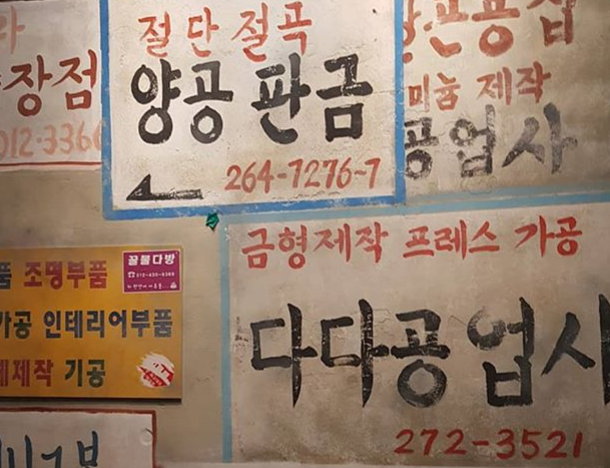 장점
012-3366
절단 절곡
양공 판금
264-7276-7
판용접
미늄 제작
공업사
조명부품
꿀물다방
가공 인테리어부품
제작 기공
금형제작 프레스 가공
다다공업사
272-3521